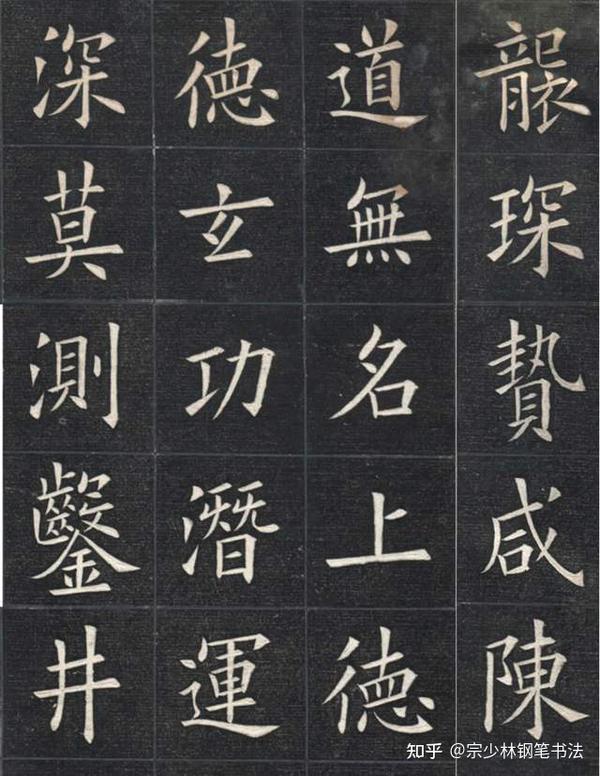 襲琛贄咸陳
道無名上徳
徳玄功潛運
深莫測鑿井
知乎 @宗少林钢笔书法